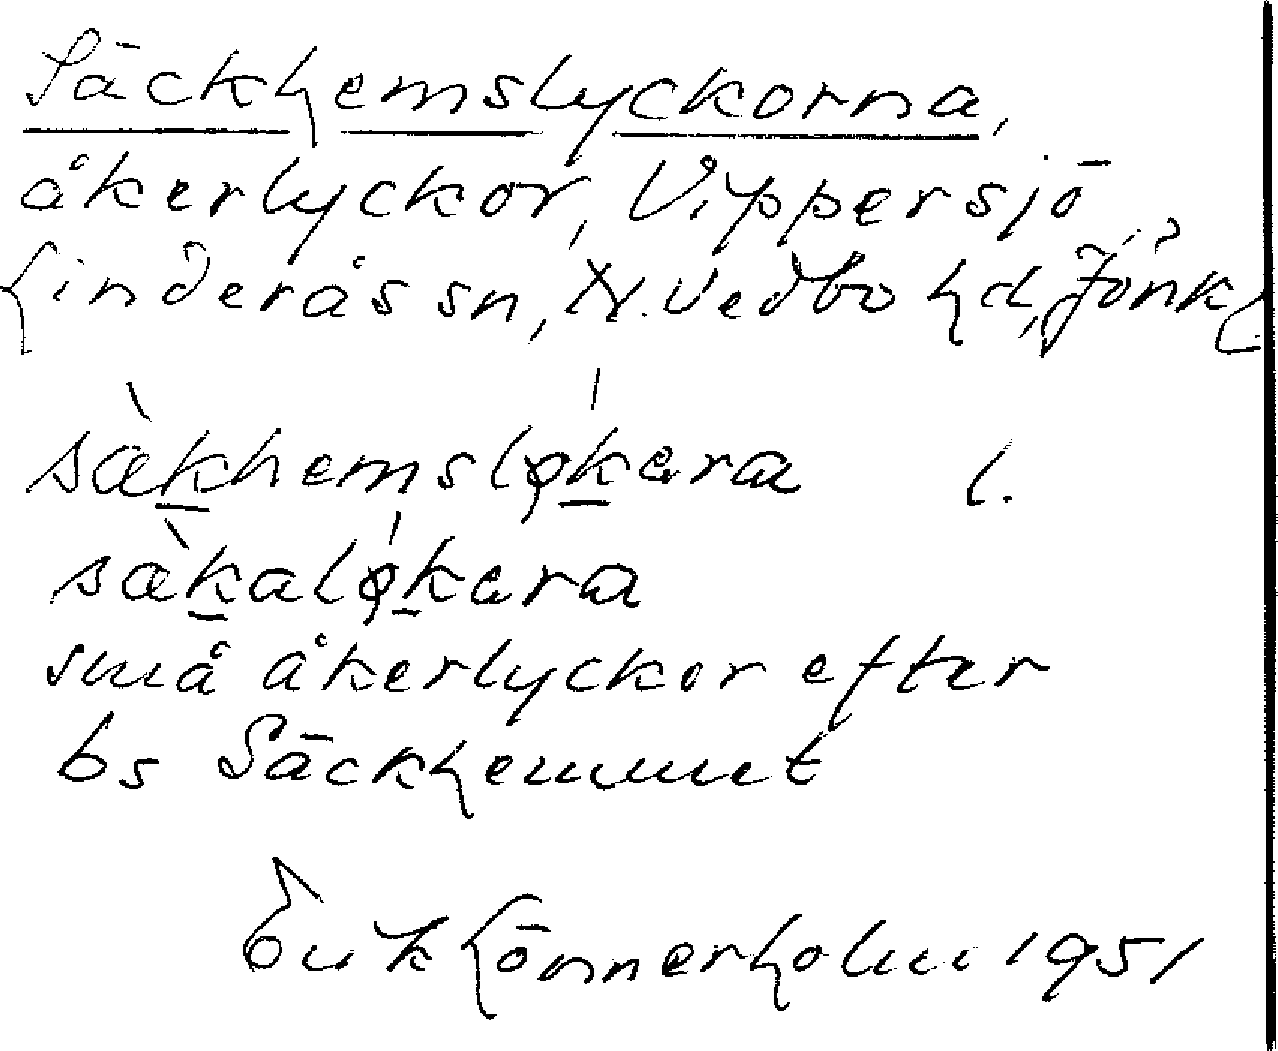 Säckhemslyckorna,
åkerlyckor, Vippersjö
Linderås sn, N. Vedbo hd, Jönk. L.
sàkhemslǫ́kera l.
sàkalǫ́kera
små åkerlyckor efter
bs Säckhemmet
Erik Lönnerholm 1951